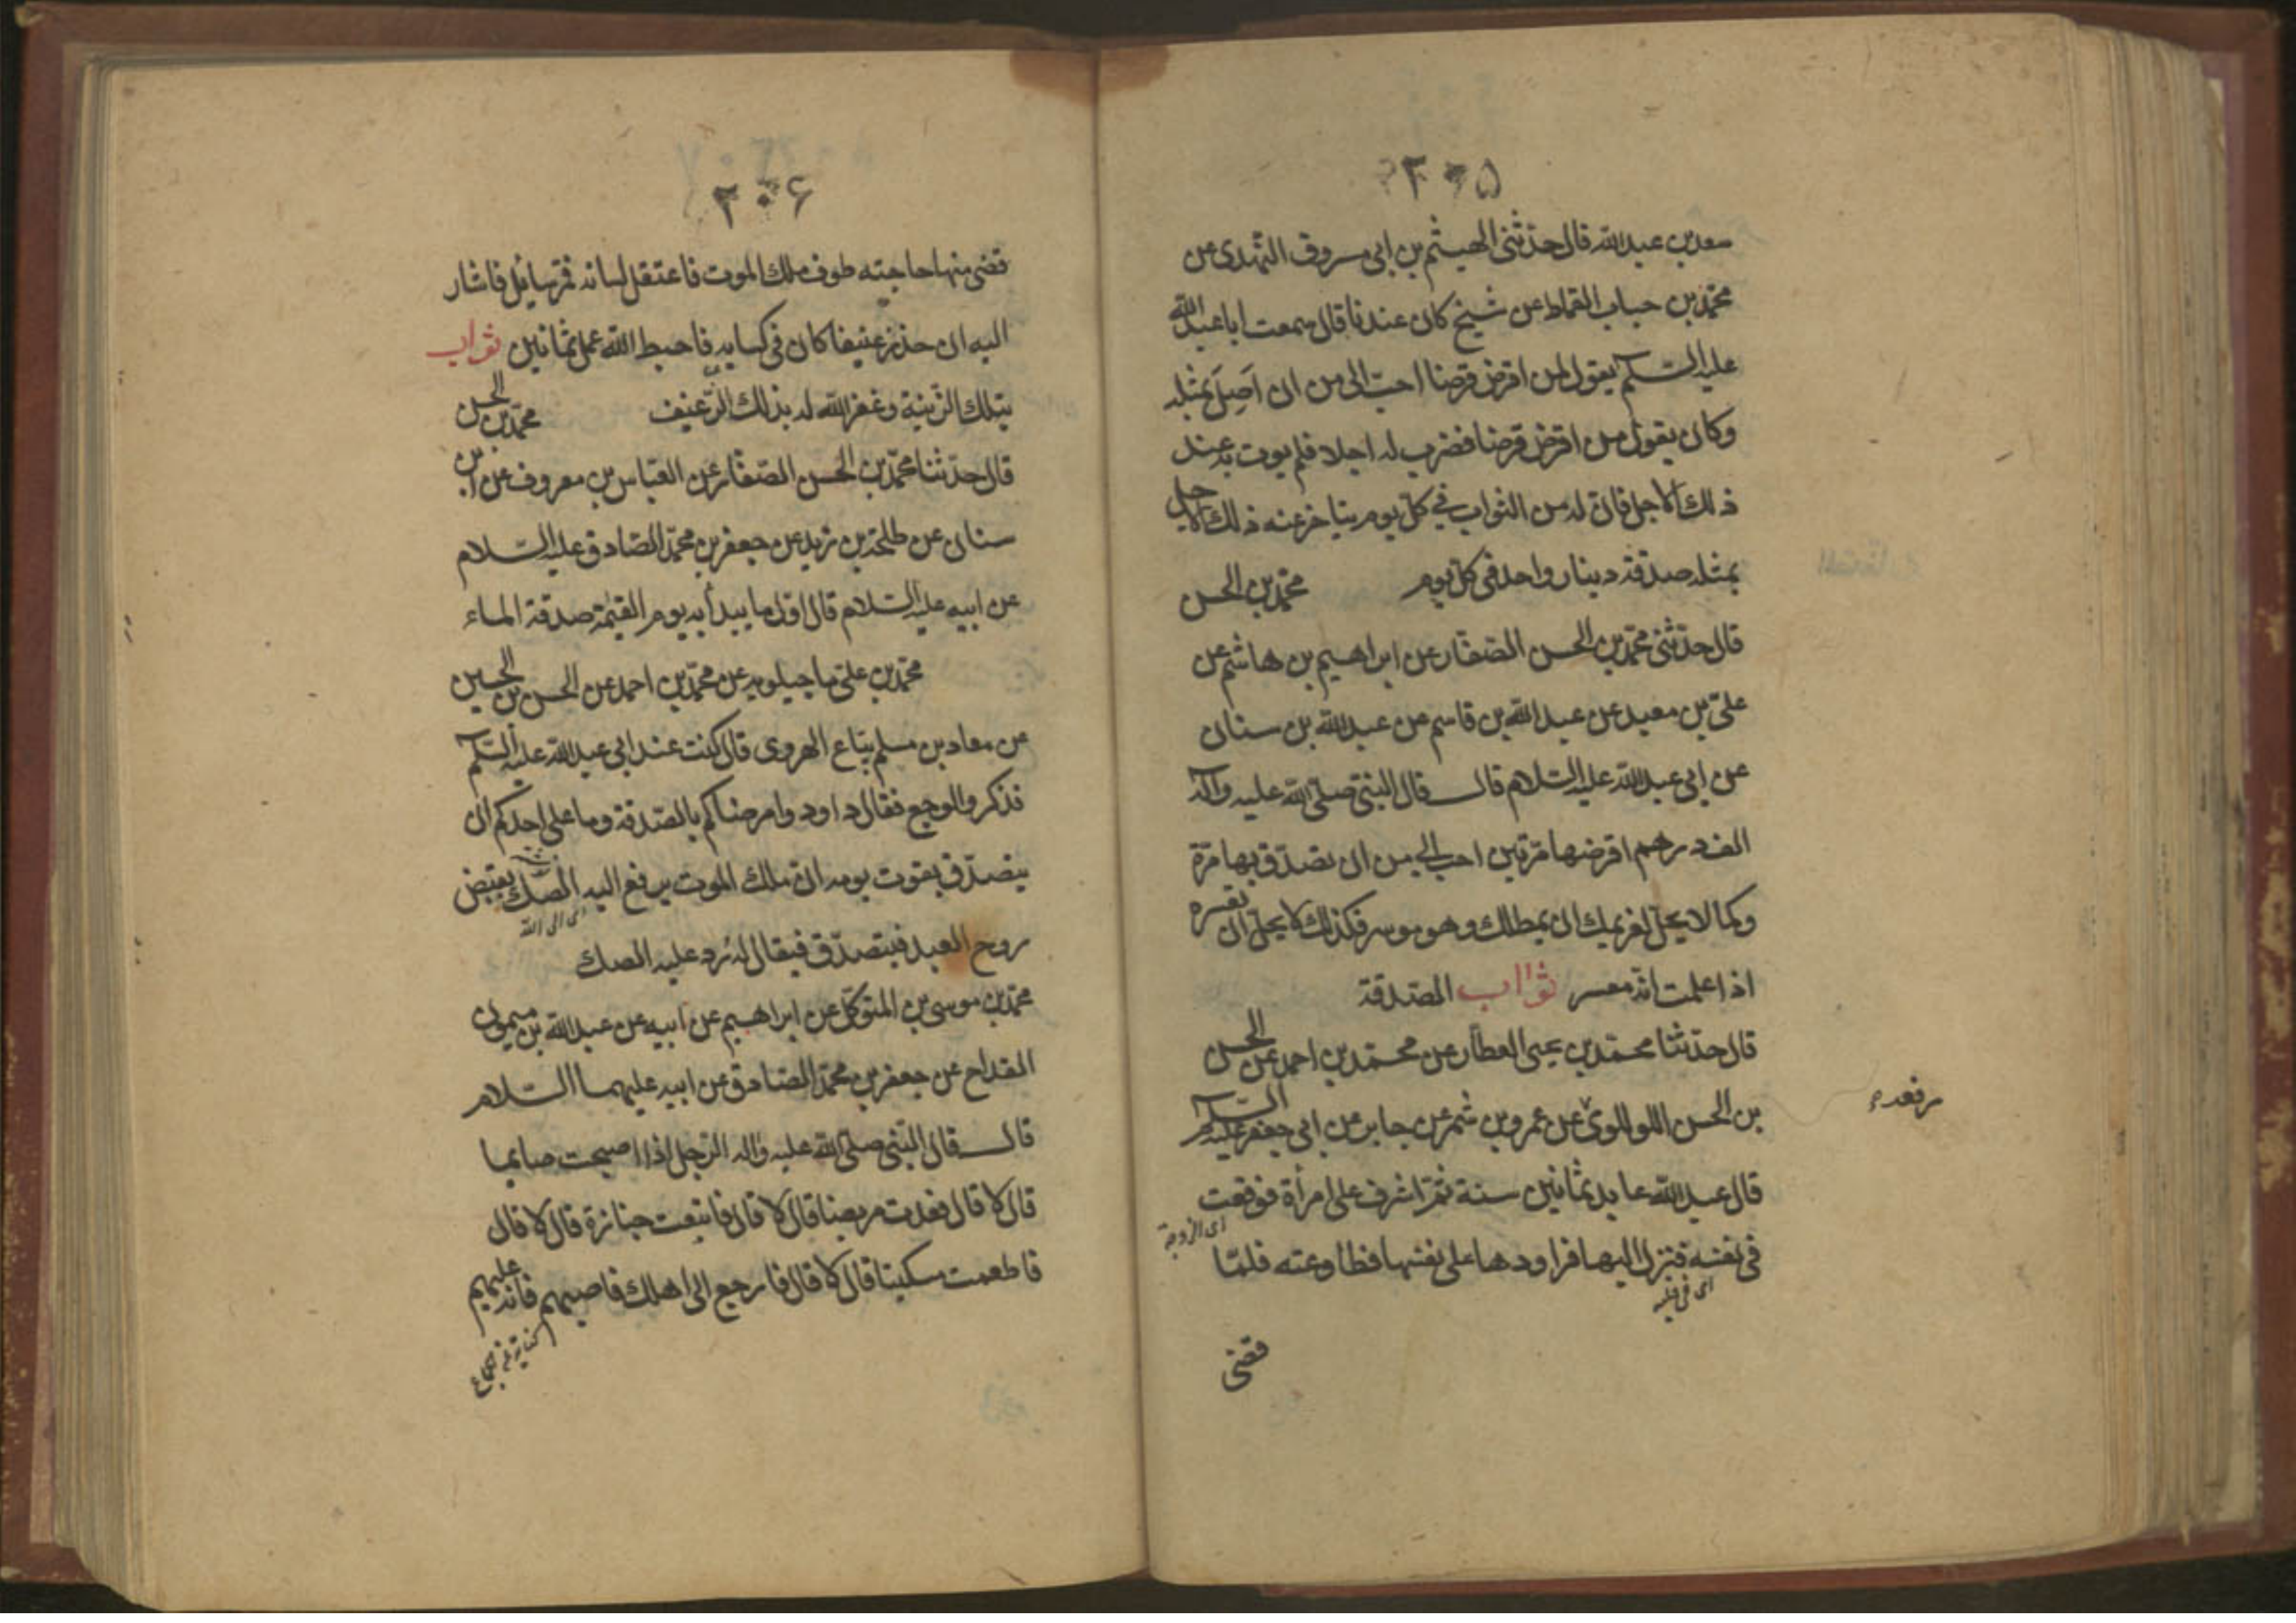 ۲۰۵
سعد بن عبد الله قال حدثنی الهیثم بن ابی مسروق النهدی عن
محمد بن حباب القماط عن شیخ کان عندنا قال سمعت ابا عبد الله
علیه السلم یقول لمن اقرض قرضا احب الی من ان اَصِلَ بمثله
وکان یقول من اقرض قرضا فضرب له اجلا فلم یوت به عند
ذلک الاجل فان له من الثواب فی کل یوم یتاخر عنه ذلک الاجل
بمثله صدقة دینار واحد فی کل یوم محمد بن الحسن
قال حدثنی محمد بن الحسن الصفار عن ابراهیم بن هاشم عن
علی بن معبد عن عبد الله بن قاسم عن عبد الله بن سنان
عن ابی عبد الله علیه السلام قال قال النبی صلی الله علیه واله
الف درهم اقرضها مرتین احب الی من ان تصدق بها مرة
وکما لا یحل لغریمک ان یمطلک وهو موسر فکذلک لا یحل ان تعسره
اذا علمت انه معسر ثواب الصدقة
قال حدثنا محمد بن یحیی العطار عن محمد بن احمد عن الحسن
بن الحسن اللولوی عن عمرو بن شمر عن جابر عن ابی جعفر علیه السلم
رفعه
قال عبد الله عابد ثمانین سنة ثم اشرف علی امرأة فوقعت
ای الزوجة
فی نفسه فنزل الیها فراودها علی نفسها فطاوعته فلما
ای فی قلبه
قضی
۲۰۶
قضی منها حاجته طوف ملک الموت فاعتقل لسانه فمر سائل فاشار
الیه ان خذ رغیفا کان فی کسایه فاحبط الله عمل ثمانین ثواب
بتلک الزنیة وغفر الله له بذلک الرغیف محمد بن الحسن
قال حدثنا محمد بن الحسن الصفار عن العباس بن معروف عن ابن
سنان عن طلحة بن زید عن جعفر بن محمد الصادق علیه السلام
عن ابیه علیه السلام قال اول ما یبدأ به یوم القیمة صدقة الماء
محمد بن علی ماجیلویه عن محمد بن احمد عن الحسن بن الحسین
عن معاد بن مسلم بیاع الهروی قال کنت عند ابی عبد الله علیه السلم
فذکروا الوجع فقال داوود وامرضاکم بالصدقة وما علی احدکم ان
یتصدق بقوت یومه ان ملک الموت یرفع الیه الصک یقبض
ای الی الله
روح العبد فیتصدق فیقال له رد علیه الصک
محمد بن موسی بن المتوکل عن ابراهیم عن ابیه عن عبد الله بن میمون
القداح عن جعفر بن محمد الصادق عن ابیه علیهما السلام
قال قال النبی صلی الله علیه واله الرجل اذا اصبحت صایما
قال لا قال فعدت مریضا قال لا قال فاتبعت جنازة قال لا قال
فاطعمت مسکینا قال لا قال فارجع الی اهلک فاصبهم فانه علیهم
کنایة عن جماع